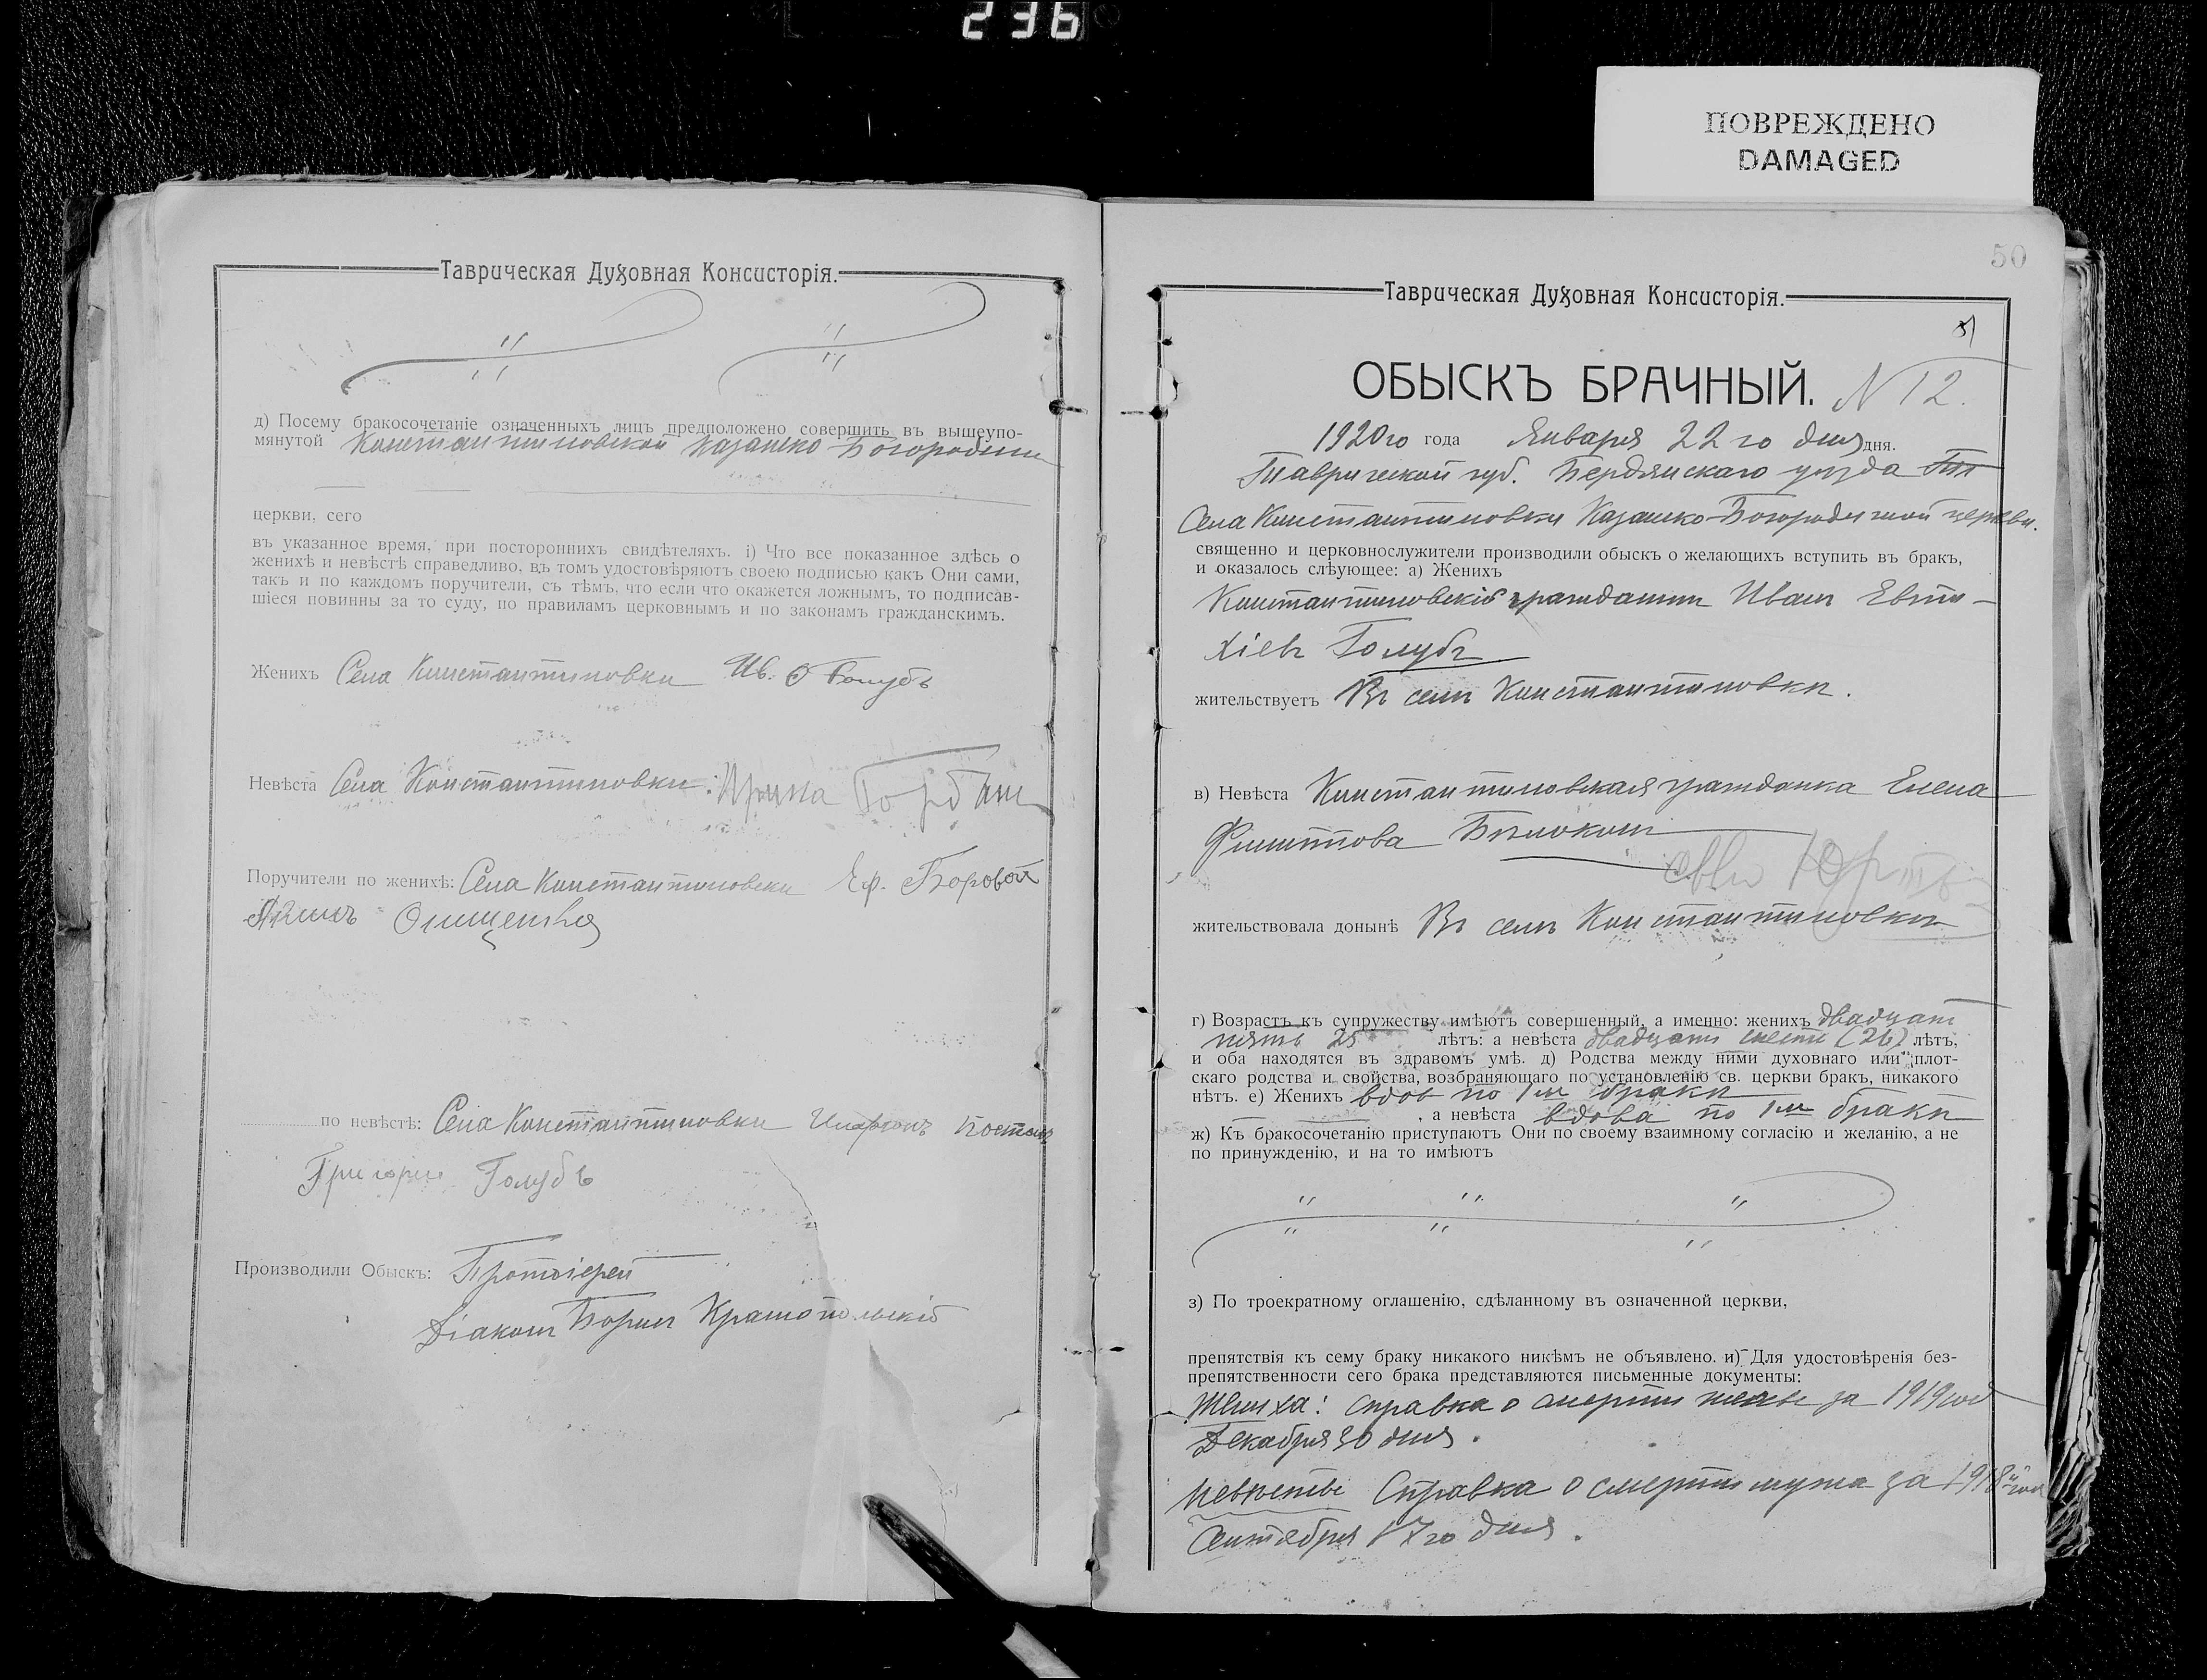 236
ПОВРЕЖДЕНО
DAMAGED
Таврическая Духовная Консисторія.
д) Посему бракосочетаніе означенныхъ лицъ предположено совершить въ вышеупо-
мянутой Константиновской Казанско-Богородичн
церкви, сего
въ указанное время, при постороннихъ свидѣтеляхъ. і) Что все показанное здѣсь о
женихѣ и невѣстѣ справедливо, въ томъ удостовѣряютъ своею подписью какъ Они сами,
такъ и по каждомъ поручители, съ тѣмъ, что если что окажется ложнымъ, то подписав-
шіеся повинны за то суду, по правиламъ церковнымъ и по законамъ гражданскимъ.
Женихъ Села Константиновки Ив. Голубъ
Невѣста Села Константиновки:
Поручители по женихѣ: Села Константиновки Еф. Боровой
Онищенко
по невѣстѣ: Села Константиновки
Григорій Голубъ
Производили Обыскъ: Протоіерей
Діаконъ Борисъ
50
Таврическая Духовная Консисторія.
ОБЫСКЪ БРАЧНЫЙ. N 12.
1920го года Января 22го дня дня.
Таврической губ. Бердянскаго уѣзда
Села Константиновки Казанско-Богородичной церкви.
священно и церковнослужители производили обыскъ о желающихъ вступить въ бракъ,
и оказалось слѣующее: а) Женихъ
Константиновскій гражданинъ Иванъ Евти-
хіевъ Голубъ
жительствуетъ Въ селѣ Константиновкѣ.
в) Невѣста Константиновская гражданка Елена
Филиппова Бѣлоконь
жительствовала донынѣ Въ селѣ Константиновкѣ
г) Возрастъ къ супружеству имѣютъ совершенный, а именно: женихъ двадцать
пять 25 лѣтъ: а невѣста двадцать шесть (26) лѣтъ,
и оба находятся въ здравомъ умѣ. д) Родства между ними духовнаго или плот-
скаго родства и свойства, возбраняющаго по установленію св. церкви бракъ, никакого
нѣтъ. е) Женихъ вдов по 1м бракѣ
, а невѣста вдова по 1м бракѣ
ж) Къ бракосочетанію приступаютъ Они по своему взаимному согласію и желанію, а не
по принужденію, и на то имѣютъ
з) По троекратному оглашенію, сдѣланному въ означенной церкви,
препятствія къ сему браку никакого никѣмъ не объявлено. и) Для удостовѣренія без-
препятственности сего брака представляются письменные документы:
Жениха: справка о смерти жены за 1919 год
Декабря 30 дня.
Невѣсты Справка о смерти мужа за 1918й год
Сентября 17го дня.